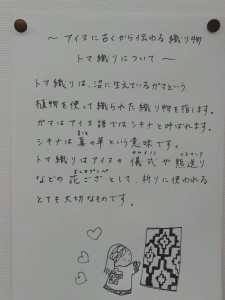 〜 アイヌに古くから伝わる 織り物
トマ織りについて 〜
トマ織りは、沼に生えているガマという
植物を使って織られた織り物を指します。
ガマはアイヌ語ではシキナと呼ばれます。
シキナは真の草という意味です。
トマ織りはアイヌの儀式や熊送り
などの花ござとして、祈りに使われる
とても大切なものです。